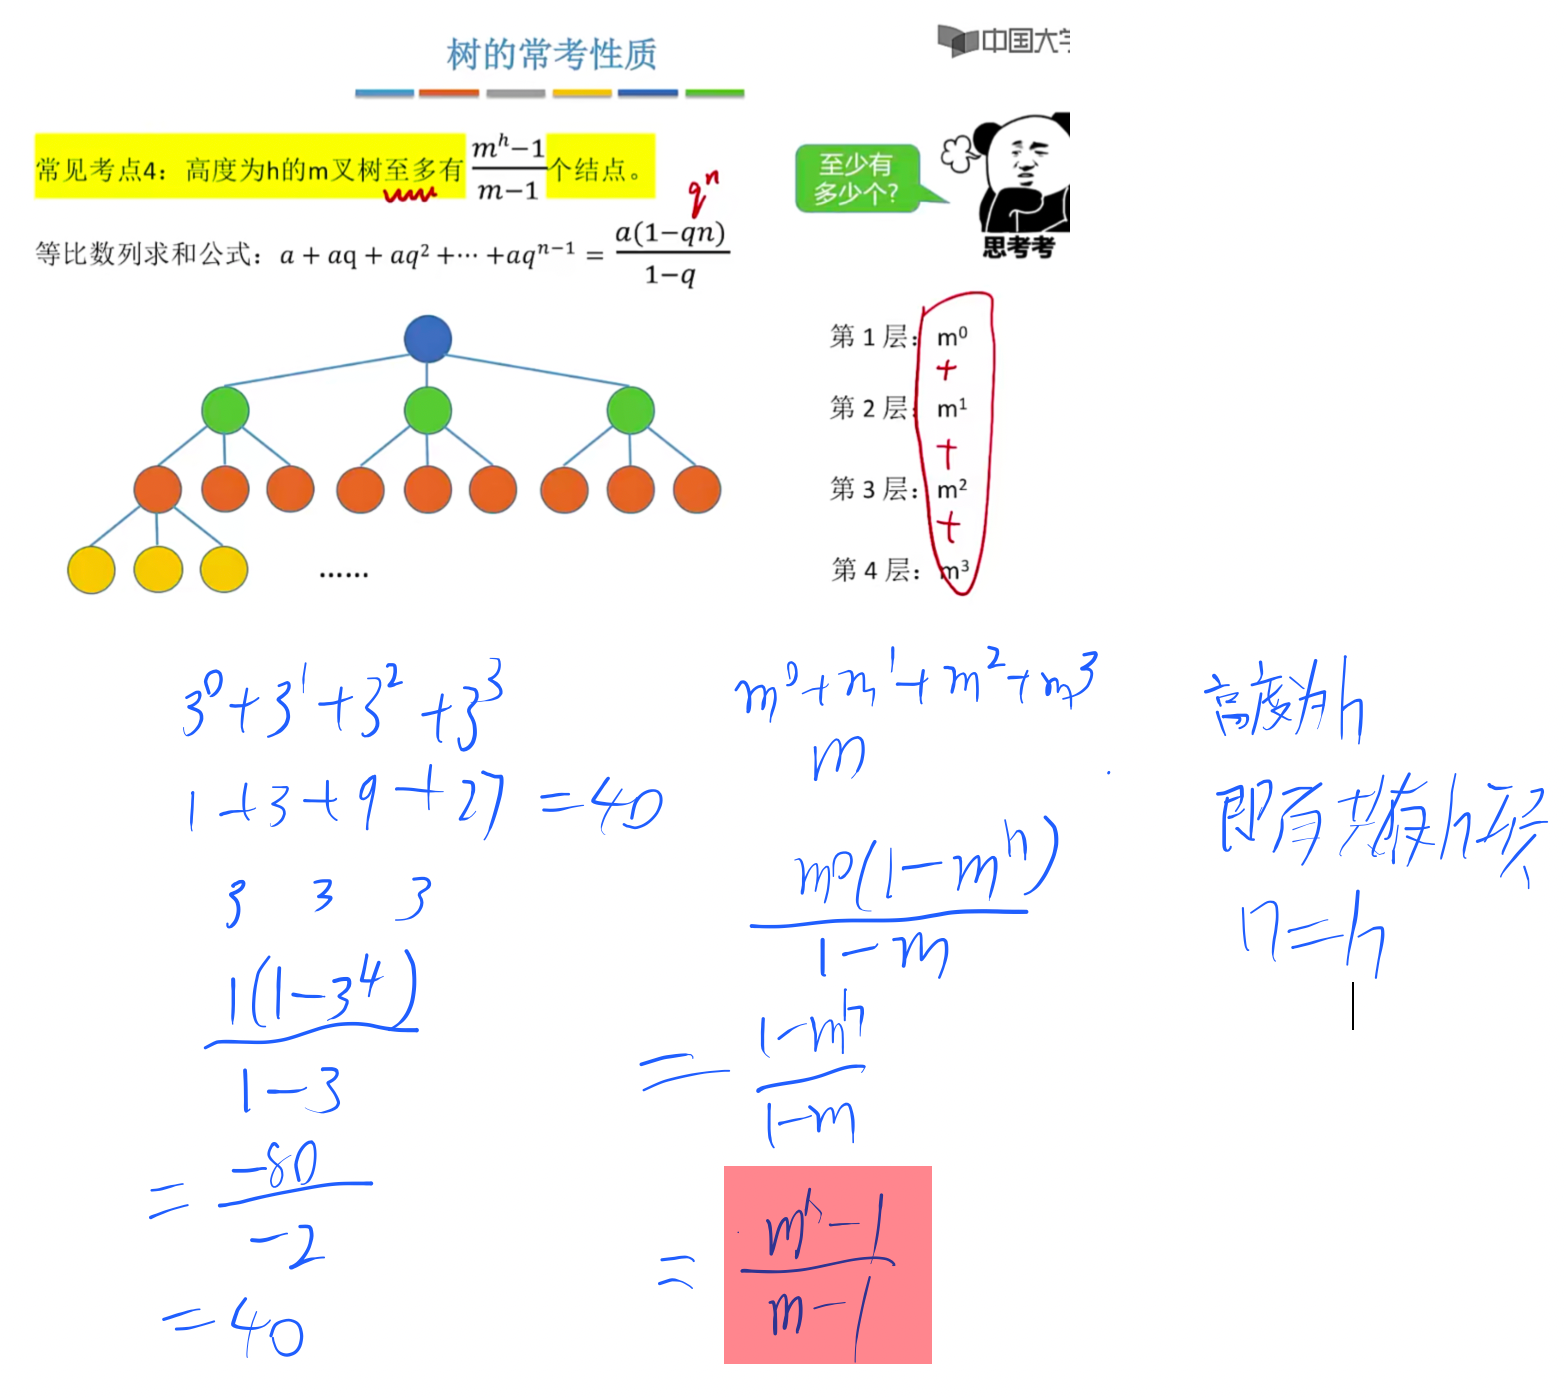 树的常考性质
中国大学
常见考点4：高度为h的m叉树至多有 (m^h−1)/(m−1) 个结点。
至少有
多少个?
q^n
等比数列求和公式：a + aq + aq² +⋯ +aq^(n−1) = a(1−qn)/(1−q)
思考考
第 1 层： m⁰
+
第 2 层： m¹
+
第 3 层： m²
+
第 4 层： m³
......
3⁰+3¹+3²+3³
1+3+9+27 =40
3 3 3
1(1−3⁴)/(1−3)
= −80/−2
=40
m⁰+m¹+m²+m³
m
m⁰(1−m^h)/(1−m)
= (1−m^h)/(1−m)
= (m^h−1)/(m−1)
高度为h
即有共有h项
n=h